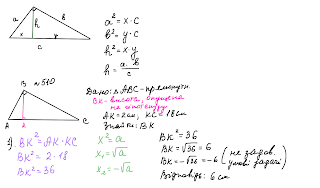 a
b
h
x
y
c
a² = x · c
b² = y · c
h² = x · y
h = a · b
c
№ 510
B
A
2
C
Дано: △ ABC - прямокутн.
BK - висота, опущена
на гіпотенузу
AK = 2 см; KC = 18 см
Знайти: BK
1) BK² = AK · KC
BK² = 2 · 18
BK² = 36
x² = a
x₁ = √a
x₂ = -√a
BK² = 36
BK = √36 = 6
BK = -√36 = -6 (не задов. умові задачі)
Відповідь: 6 см